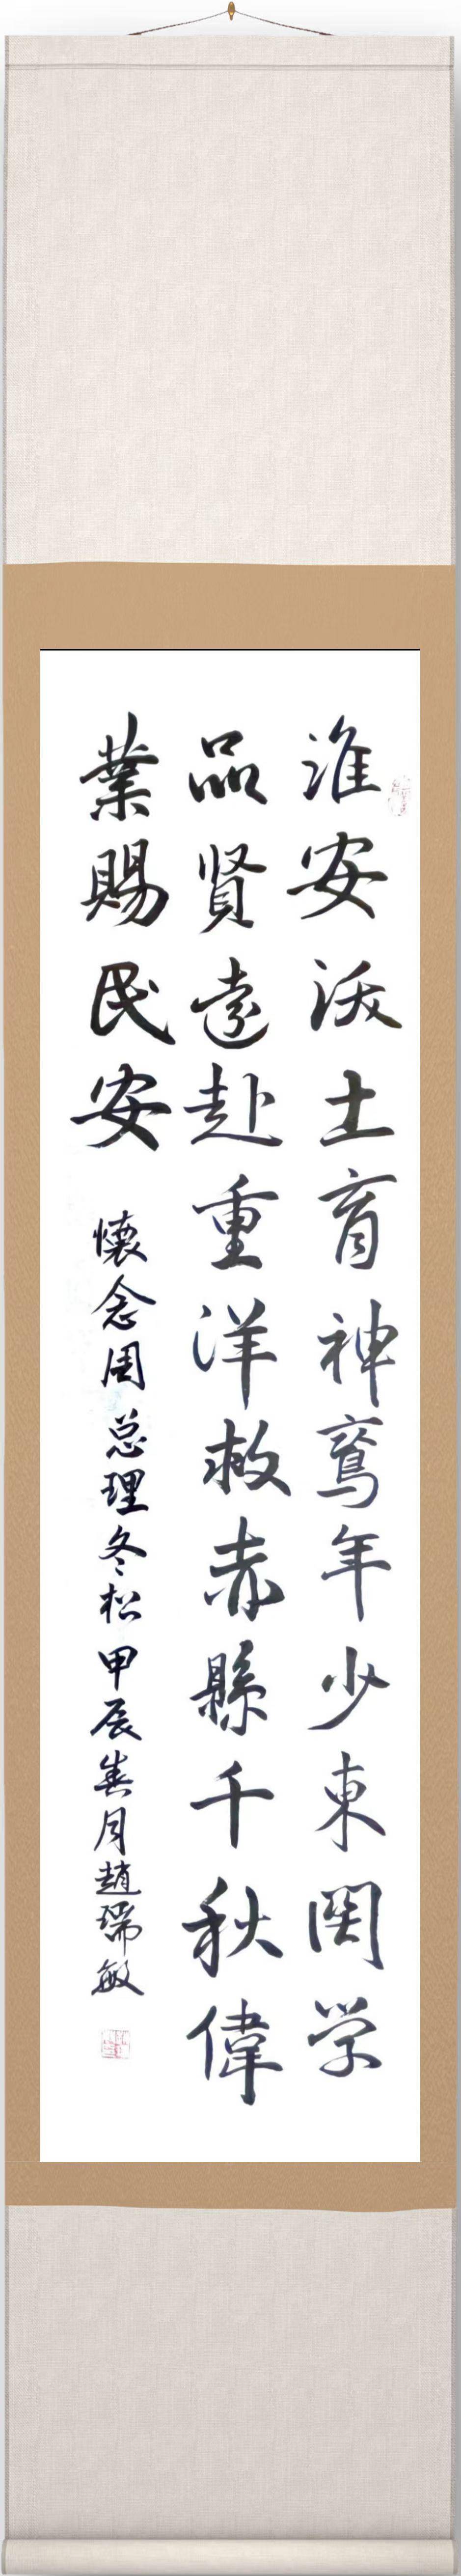 淮安沃土育神鸾年少東関学
品贤遠赴重洋救赤縣千秋偉
業賜民安
懷念周总理冬松甲辰春月趙瑞敏